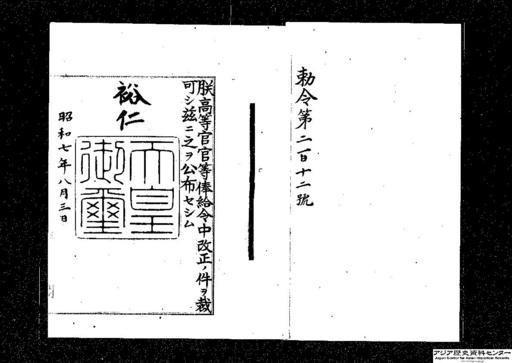 勅令第二百十二號
朕高等官官等俸給令中改正ノ件ヲ裁
可シ茲ニ之ヲ公布セシム
裕仁
天皇
御璽
昭和七年八月三日
アジア歴史資料センター
Japan Center for Asian Historical Records